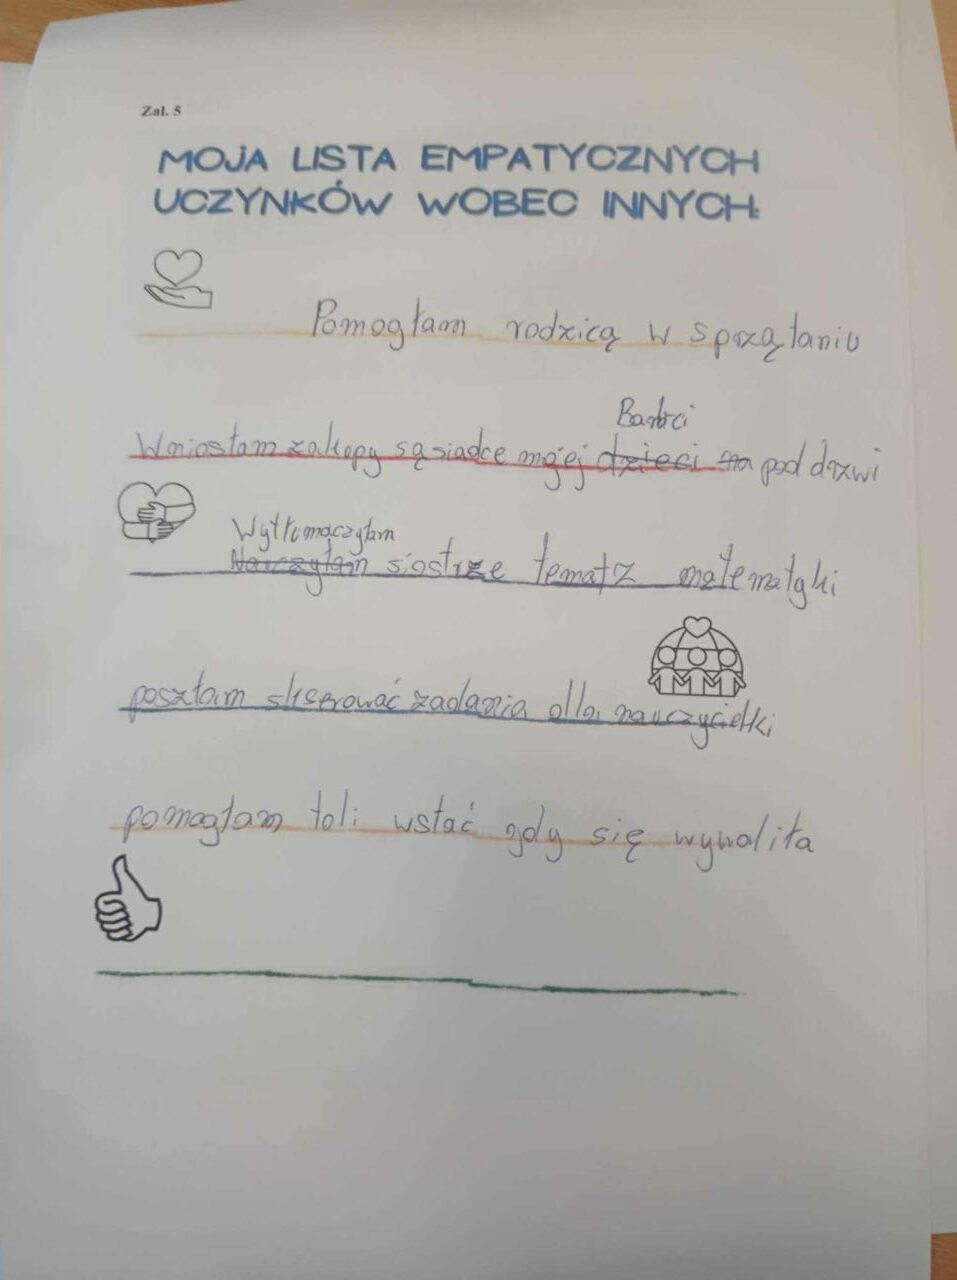 Zał. 5
MOJA LISTA EMPATYCZNYCH
UCZYNKÓW WOBEC INNYCH:
Pomogłam rodzicą w sprzątaniu
Babci
Wniosłam zakupy sąsiadce mojej dzieci na pod drzwi
Wytłomaczyłam
Nauczyłam siostrze tematz matematyki
poszłam skserować zadania dla nauczycielki
pomogłam toli wstać gdy się wywaliła